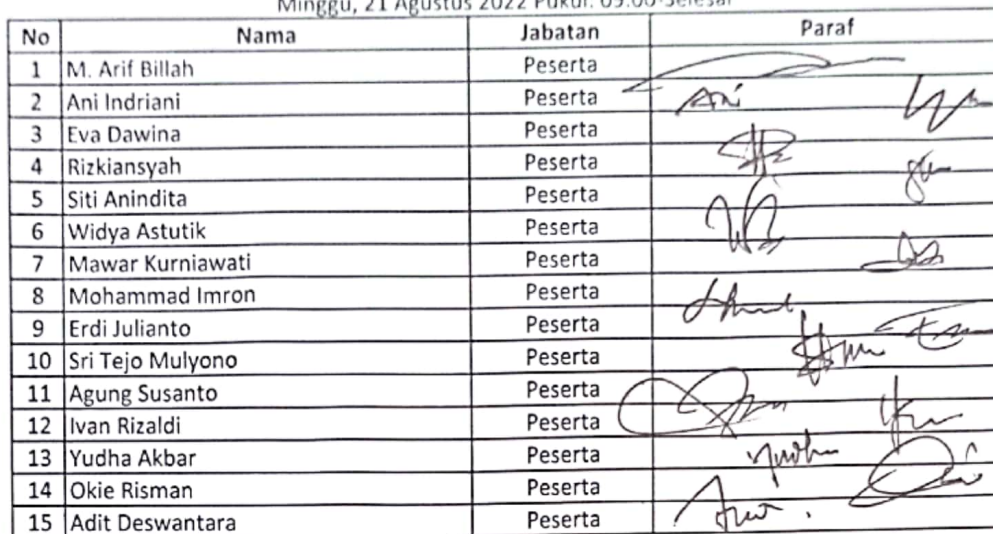 Minggu, 21 Agustus 2022 Pukul. 09.00-Selesai
No Nama Jabatan Paraf
1 M. Arif Billah Peserta
2 Ani Indriani Peserta Ani
3 Eva Dawina Peserta
4 Rizkiansyah Peserta
5 Siti Anindita Peserta
6 Widya Astutik Peserta
7 Mawar Kurniawati Peserta
8 Mohammad Imron Peserta
9 Erdi Julianto Peserta
10 Sri Tejo Mulyono Peserta
11 Agung Susanto Peserta
12 Ivan Rizaldi Peserta
13 Yudha Akbar Peserta
14 Okie Risman Peserta
15 Adit Deswantara Peserta